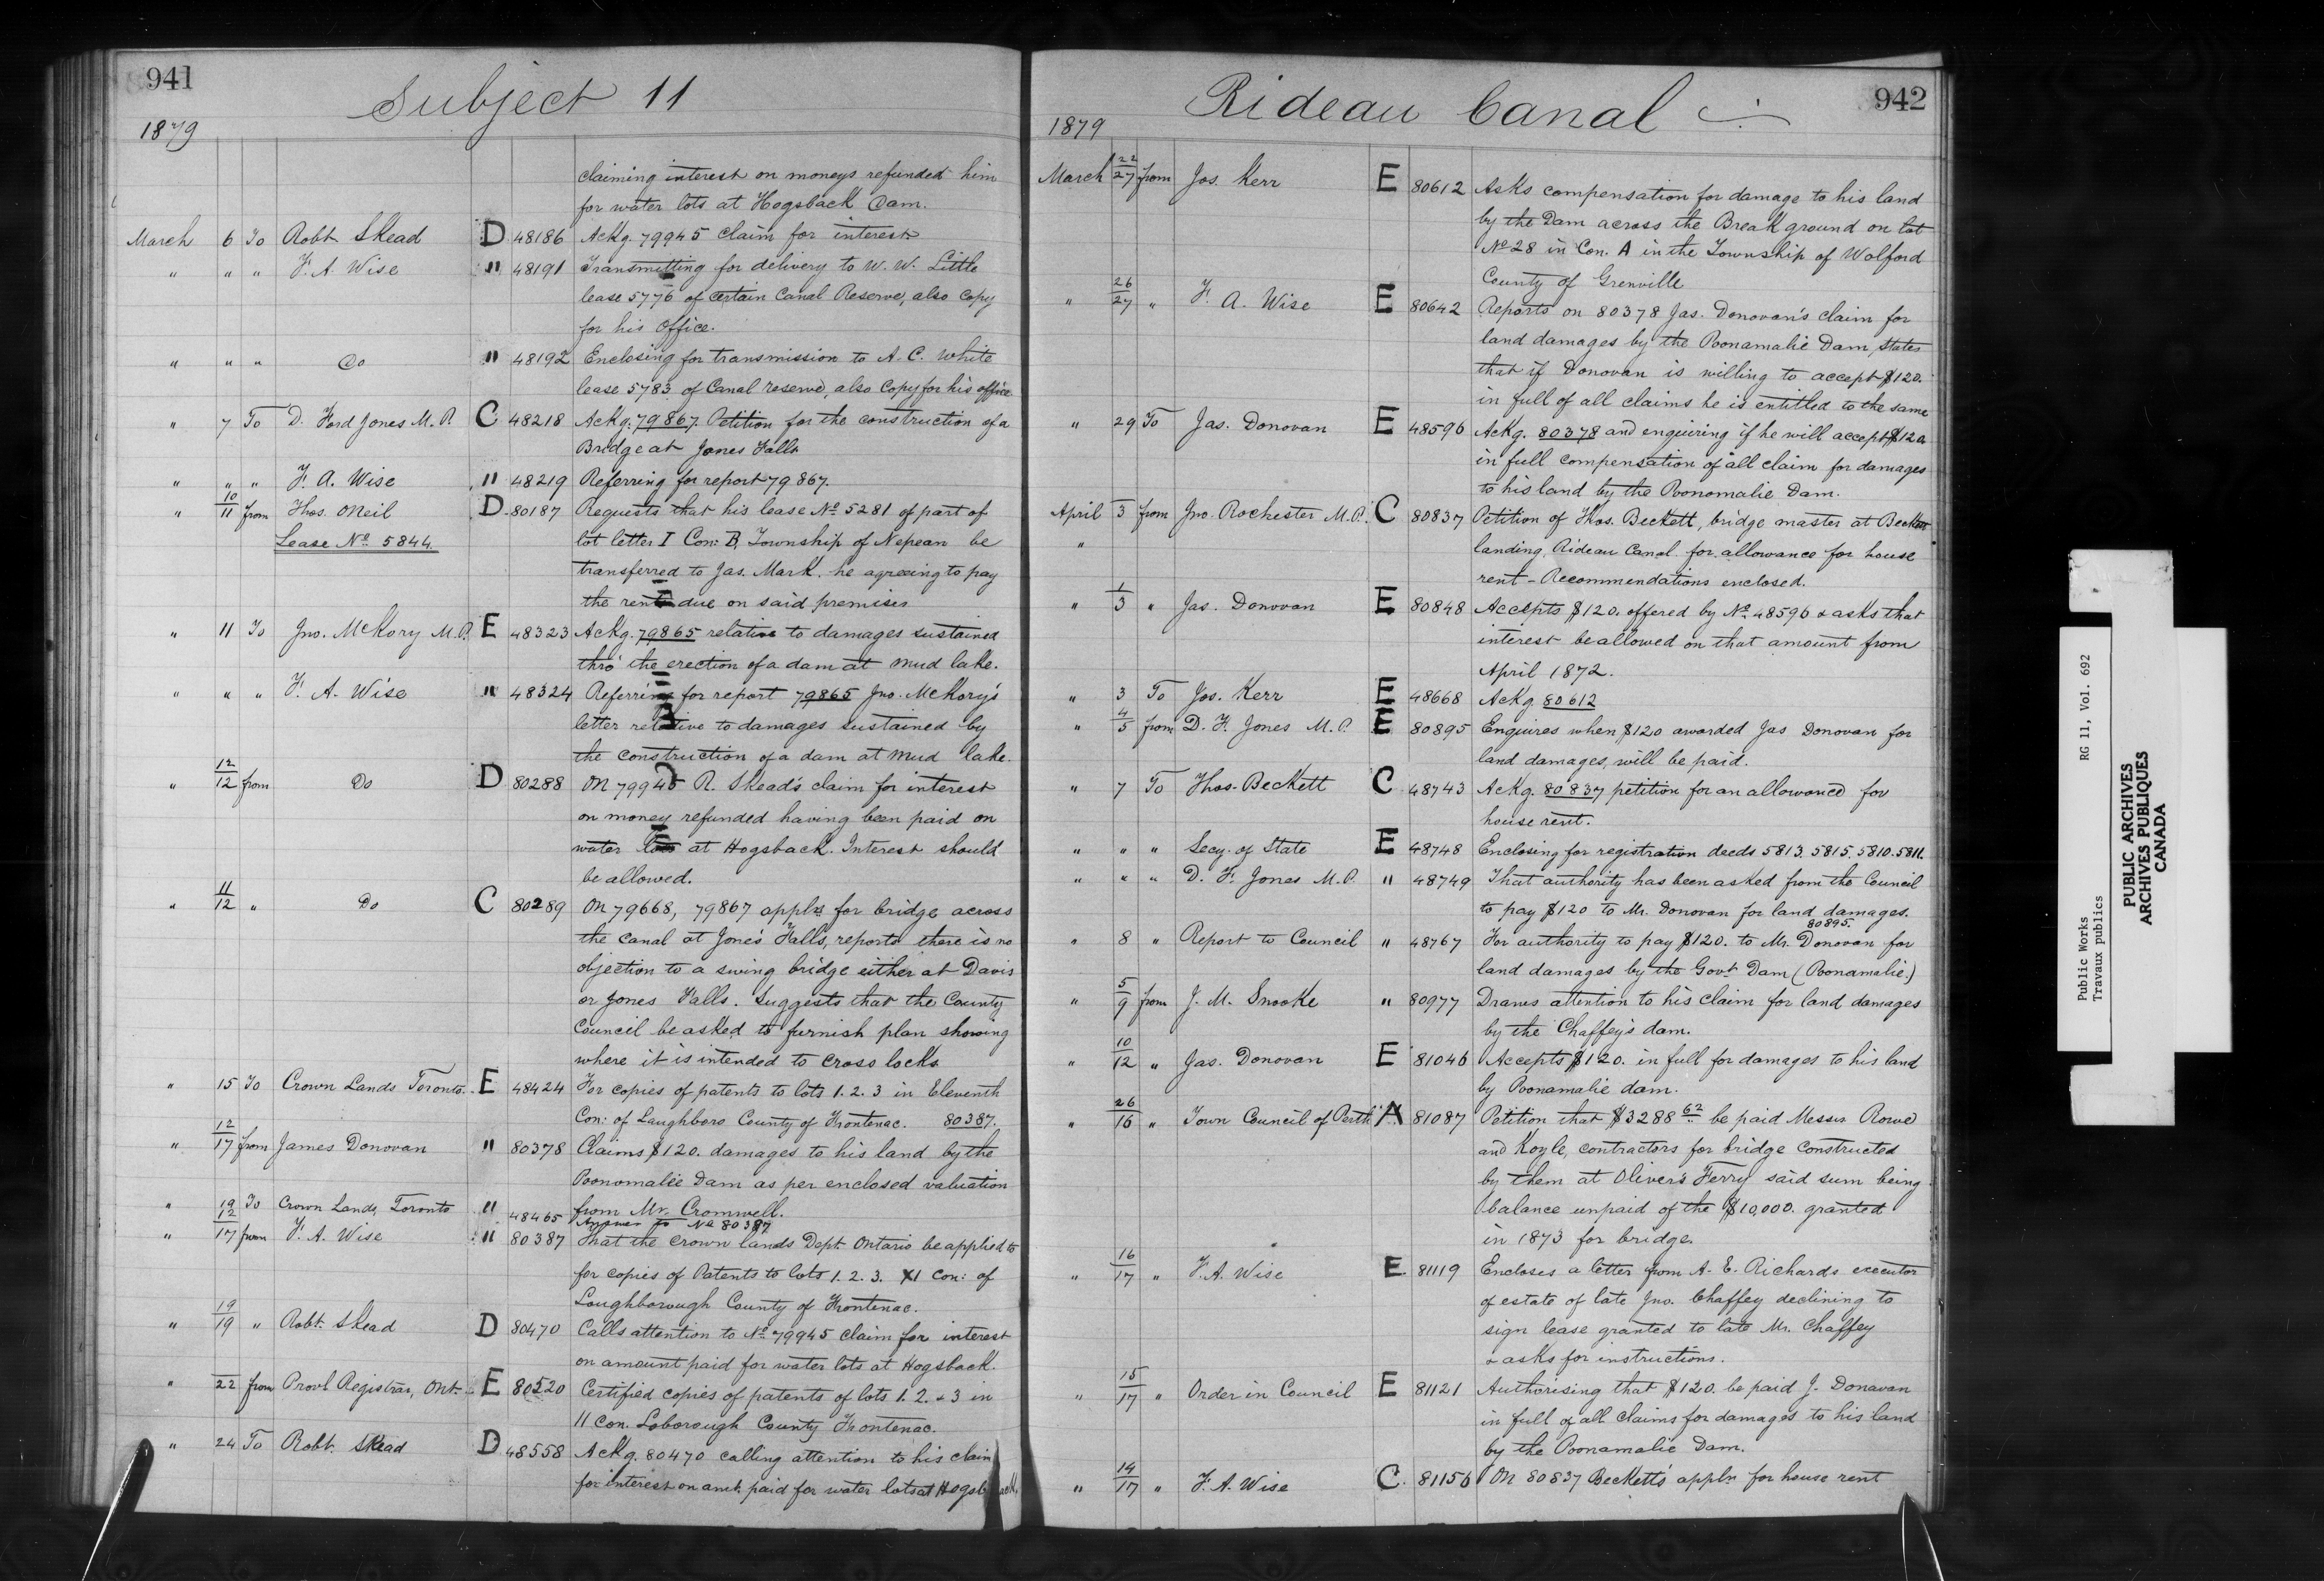 941
Subject 11
1879
claiming interest on moneys refunded him
for water lots at Hogsback Dam.
March 6 To Robt Skead D 48186 Ackg. 79945 claim for interest
" " " F. A. Wise " 48191 Transmitting for delivery to W. W. Little
lease 5776 of certain Canal Reserve, also copy
for his office.
" " " Do " 48192 Enclosing for transmission to A. C. White
lease 5783 of Canal reserve, also copy for his office
" 7 To D. Ford Jones M. P. C 48218 Ackg. 79867. Petition for the construction of a
Bridge at Jones Falls
" " " F. A. Wise " 48219 Referring for report 79867.
" 10/11 from Thos. ONeil D 80187 Requests that his lease No 5281 of part of
Lease No 5844. lot letter I Con: B, Township of Nepean be
transferred to Jas. Mark. he agreeing to pay
the rent due on said premises
" 11 To Jno. McKory M.P. E 48323 Ackg. 79865 relative to damages sustained
thro' the erection of a dam at Mud lake.
" " " F. A. Wise " 48324 Referring for report 79865 Jno. McKory's
letter relative to damages sustained by
the construction of a dam at Mud lake.
" 12/12 from Do D 80288 On 79945 R. Skead's claim for interest
on money refunded having been paid on
water lots at Hogsback. Interest should
be allowed.
" 11/12 " Do C 80289 On 79668, 79867 applns for bridge across
the canal at Jone's Falls, reports there is no
objection to a swing bridge either at Davis
or Jones Falls. Suggests that the County
Council be asked to furnish plan showing
where it is intended to cross locks
" 15 To Crown Lands Toronto. E 48424 For copies of patents to lots 1. 2. 3 in Eleventh
Con: of Laughboro County of Frontenac. 80387.
" 12/17 from James Donovan " 80378 Claims $120. damages to his land by the
Poonomalie Dam as per enclosed valuation
from Mr. Cromwell.
" 19 To Crown Lands, Toronto " 48465 Answer to No 80387
" 12/17 from F. A. Wise " 80387 That the Crown lands Dept. Ontario be applied to
for copies of Patents to lots 1. 2. 3. XI Con: of
Loughborough County of Frontenac.
" 19/19 " Robt. Skead D 80470 Calls attention to No 79945 claim for interest
on amount paid for water lots at Hogsback.
" 22 from Provl Registrar, Ont. E 80520 Certified copies of patents of lots 1. 2. & 3 in
11 Con. Loborough County Frontenac.
" 24 To Robt. Skead D 48558 Ackg. 80470 calling attention to his claim
for interest on amt. paid for water lots at Hogsback.
942
Rideau Canal
1879
March 22/27 from Jos. Kerr E 80612 Asks compensation for damage to his land
by the Dam across the Break ground on lot
No 28 in Con. A in the Township of Wolford
County of Grenville
" 26/27 " F. A. Wise E 80642 Reports on 80378 Jas. Donovan's claim for
land damages by the Poonamalie Dam, states
that if Donovan is willing to accept $120.
in full of all claims he is entitled to the same
" 29 To Jas. Donovan E 48596 Ackg. 80378 and enquiring if he will accept $120
in full compensation of all claim for damages
to his land by the Poonomalie Dam.
April 3 from Jno. Rochester M.P. C 80837 Petition of Thos. Beckett, bridge master at Becketts
" landing, Rideau Canal for allowance for house
rent - Recommendations enclosed.
" 1/3 " Jas. Donovan E 80848 Accepts $120. offered by No 48596 & asks that
interest be allowed on that amount from
April 1872.
" 3 To Jos. Kerr E 48668 Ackg 80612
" 4/5 from D. F. Jones M. P. E 80895 Enquires when $120 awarded Jas Donovan for
land damages, will be paid.
" 7 To Thos. Beckett C 48743 Ackg. 80837 petition for an allowance for
house rent.
" " " Secy. of State E 48748 Enclosing for registration deeds 5813. 5815. 5810. 5811.
" " " D. F. Jones M. P. " 48749 That authority has been asked from the Council
to pay $120 to Mr. Donovan for land damages.
80895.
" 8 " Report to Council " 48767 For authority to pay $120. to Mr. Donovan for
land damages by the Govt Dam (Poonamalie.)
" 5/9 from J. M. Snooke " 80977 Draws attention to his claim for land damages
by the Chaffey's dam.
" 10/12 " Jas. Donovan E 81046 Accepts $120. in full for damages to his land
by Poonamalie dam.
" 26/16 " Town Council of Perth A 81087 Petition that $3288 62 be paid Messrs Rowe
and Koyle, contractors for bridge constructed
by them at Oliver's Ferry said sum being
balance unpaid of the $10,000. granted
in 1873 for bridge.
" 16/17 " F. A. Wise E. 81119 Encloses a letter from A. E. Richards executor
of estate of late Jno. Chaffey declining to
sign lease granted to late Mr. Chaffey
& asks for instructions.
" 15/17 " Order in Council E 81121 Authorising that $120. be paid J. Donavan
in full of all claims for damages to his land
by the Poonamalie Dam.
" 14/17 " F. A. Wise C. 81156 On 80837 Beckett's appln for house rent
Public Works RG 11, Vol. 692
Travaux publics
PUBLIC ARCHIVES
ARCHIVES PUBLIQUES
CANADA